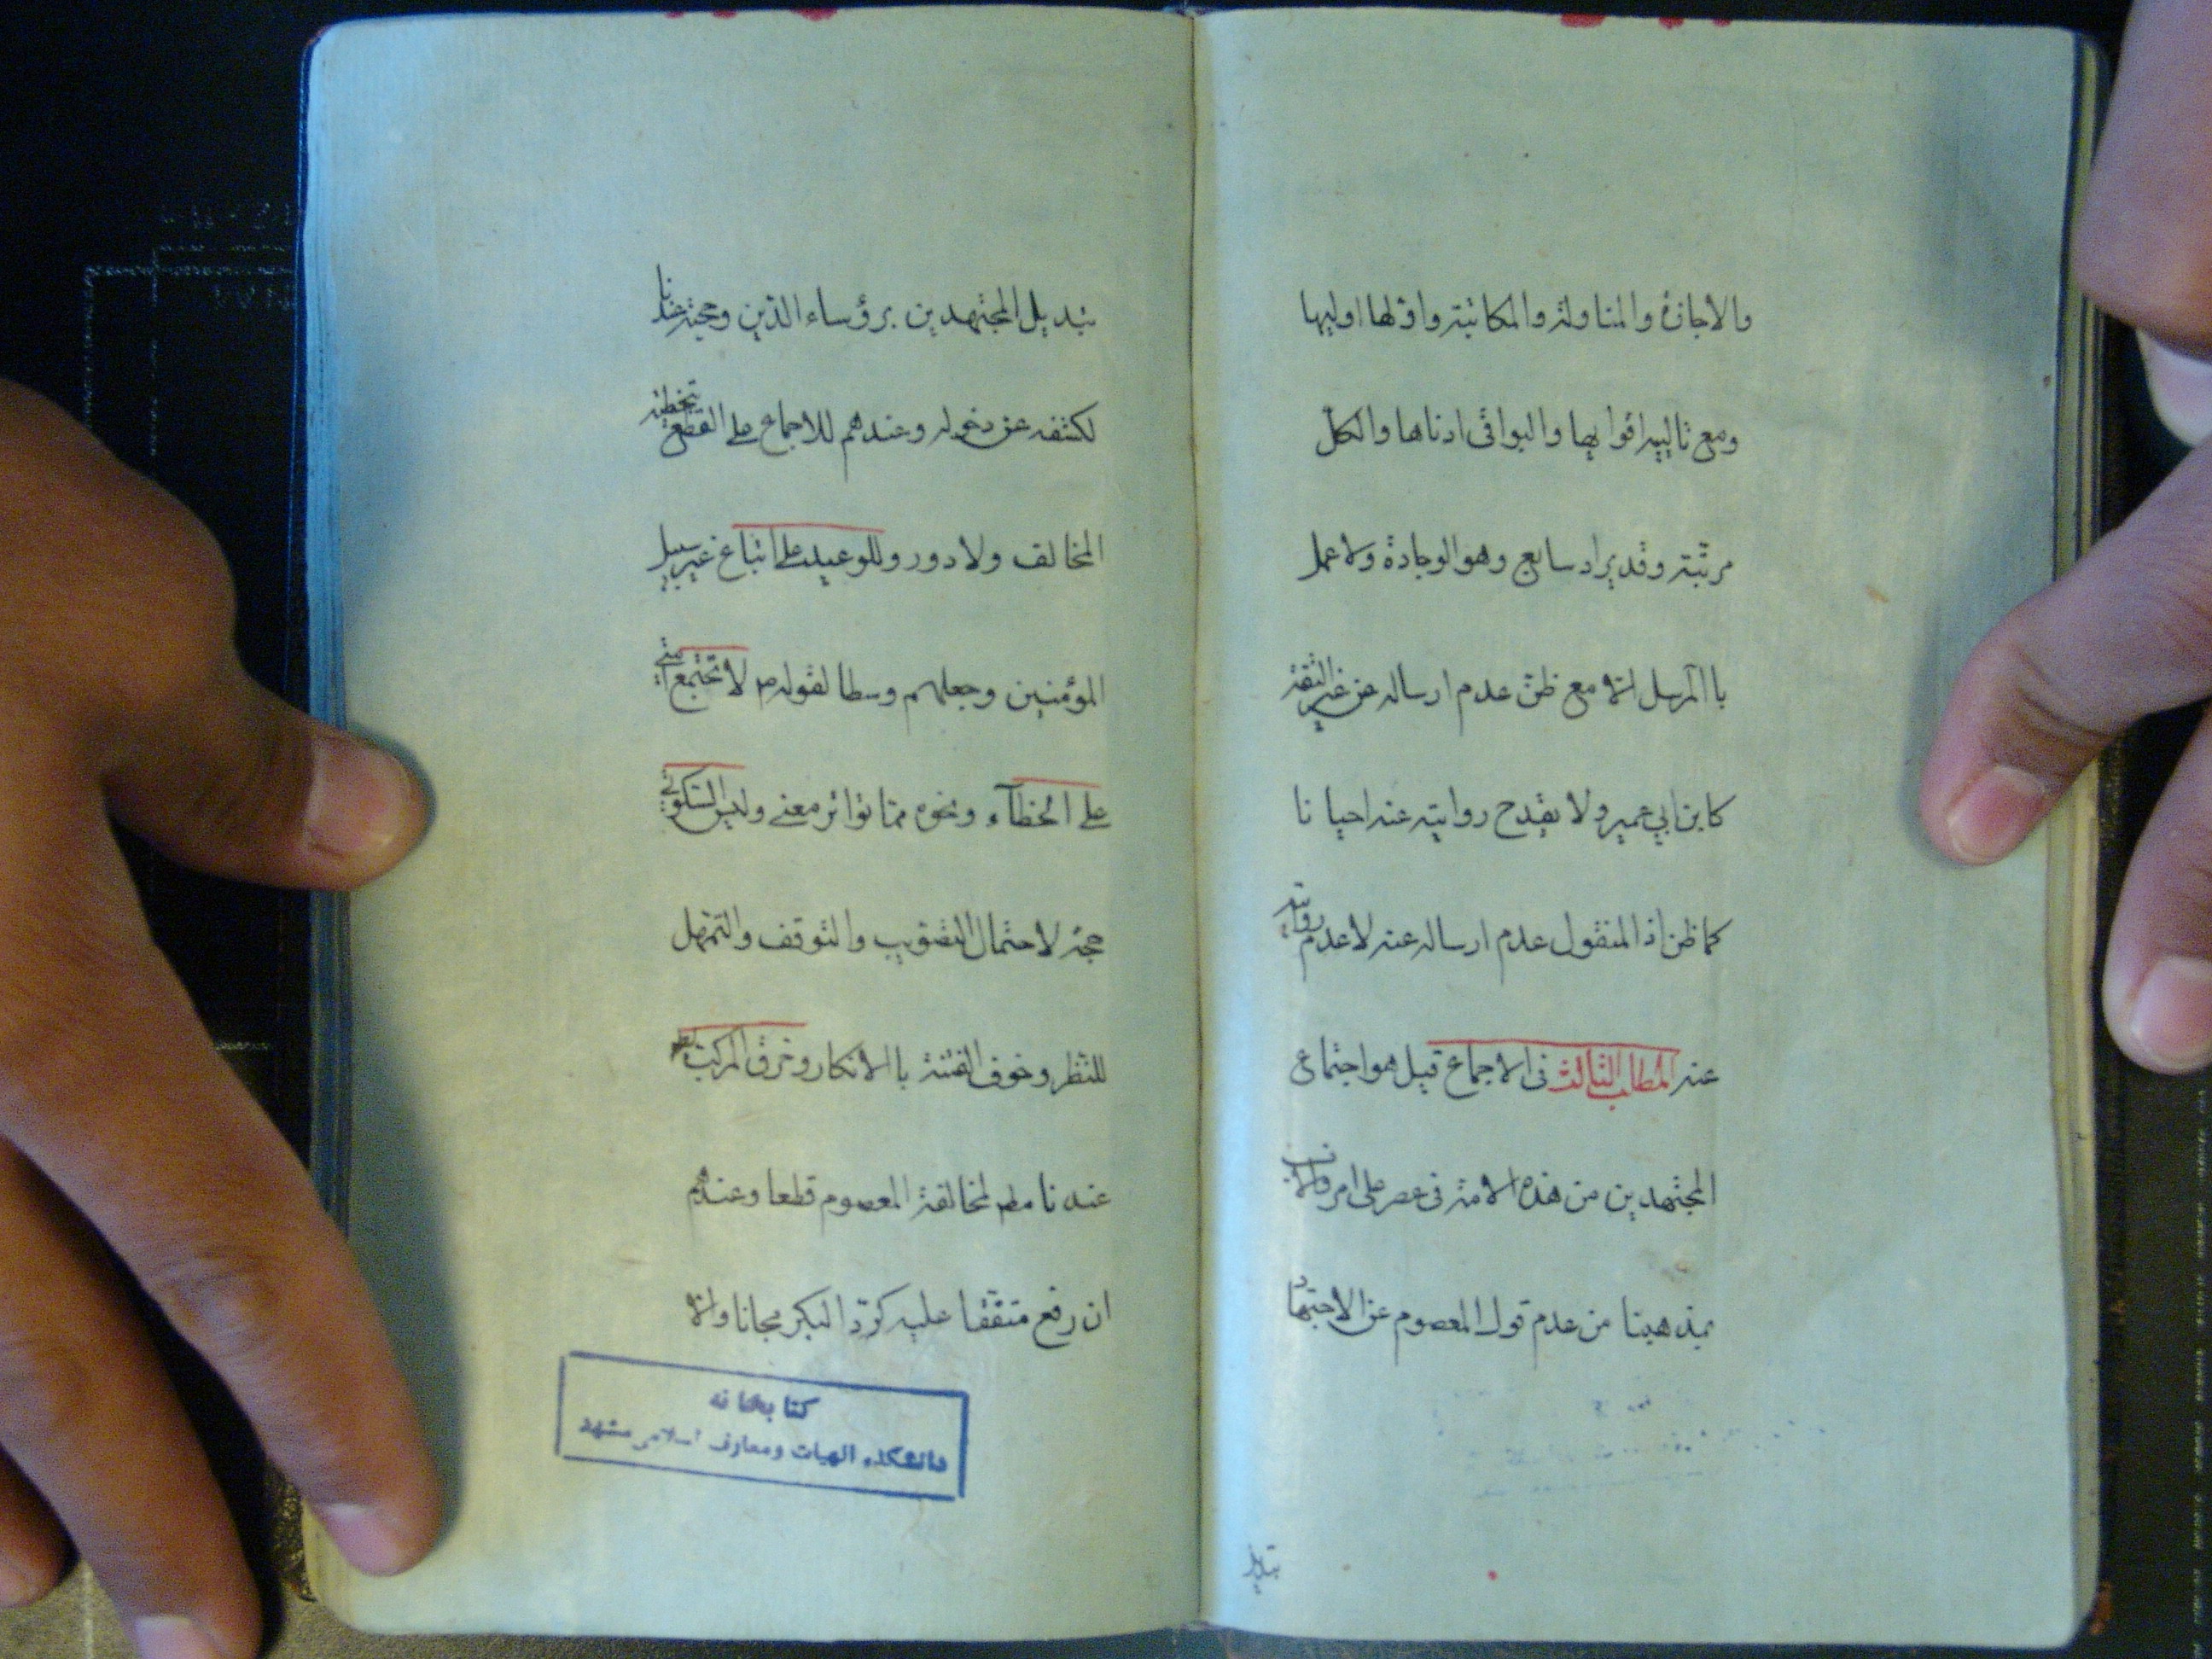 والاجازة والمناولة والمكاتبة واولها اوليها
ومع تالييه اقوابها والبواقى ادناها والكل
مرتبة وقد يراد سابع وهو الوجادة ولا عمل
باالمرسل الا مع ظن عدم ارساله عن غير الثقة
كابن ابي عمير ولا يقدح روايته عنه احيانا
كما ظن اذ المنقول عدم ارساله عنه لا عدم روايته
عنه المطلب الثالث فى الاجماع قيل هو اجتماع
المجتهدين من هذه الامة فى عصر على امر والانسب
بمذهبنا من عدم قول المعصوم عن الاجتهاد
تبديل
تبديل المجتهدين برؤساء الدين وحجية عندنا
لكشفه عن دخوله وعندهم للاجماع على القطع بتخطئة
المخالف ولا دور وللوعيد على اتباع غير سبيل
المؤمنين وجعلهم وسطا لقوله ص لا تجتمع امتي
على الخطآء ونحوه مما تواتر معنى وليس السكوتي
حجة لاحتمال التصويب والتوقف والتمهل
للنظر وخوف الفتنة باالانكار وخرق المركب
عندنا مطم لمخالفة المعصوم قطعا وعندهم
ان رفع متفقا عليه كرد البكر مجانا والا
كتابخانه
دانشكده الهيات ومعارف اسلامى مشهد